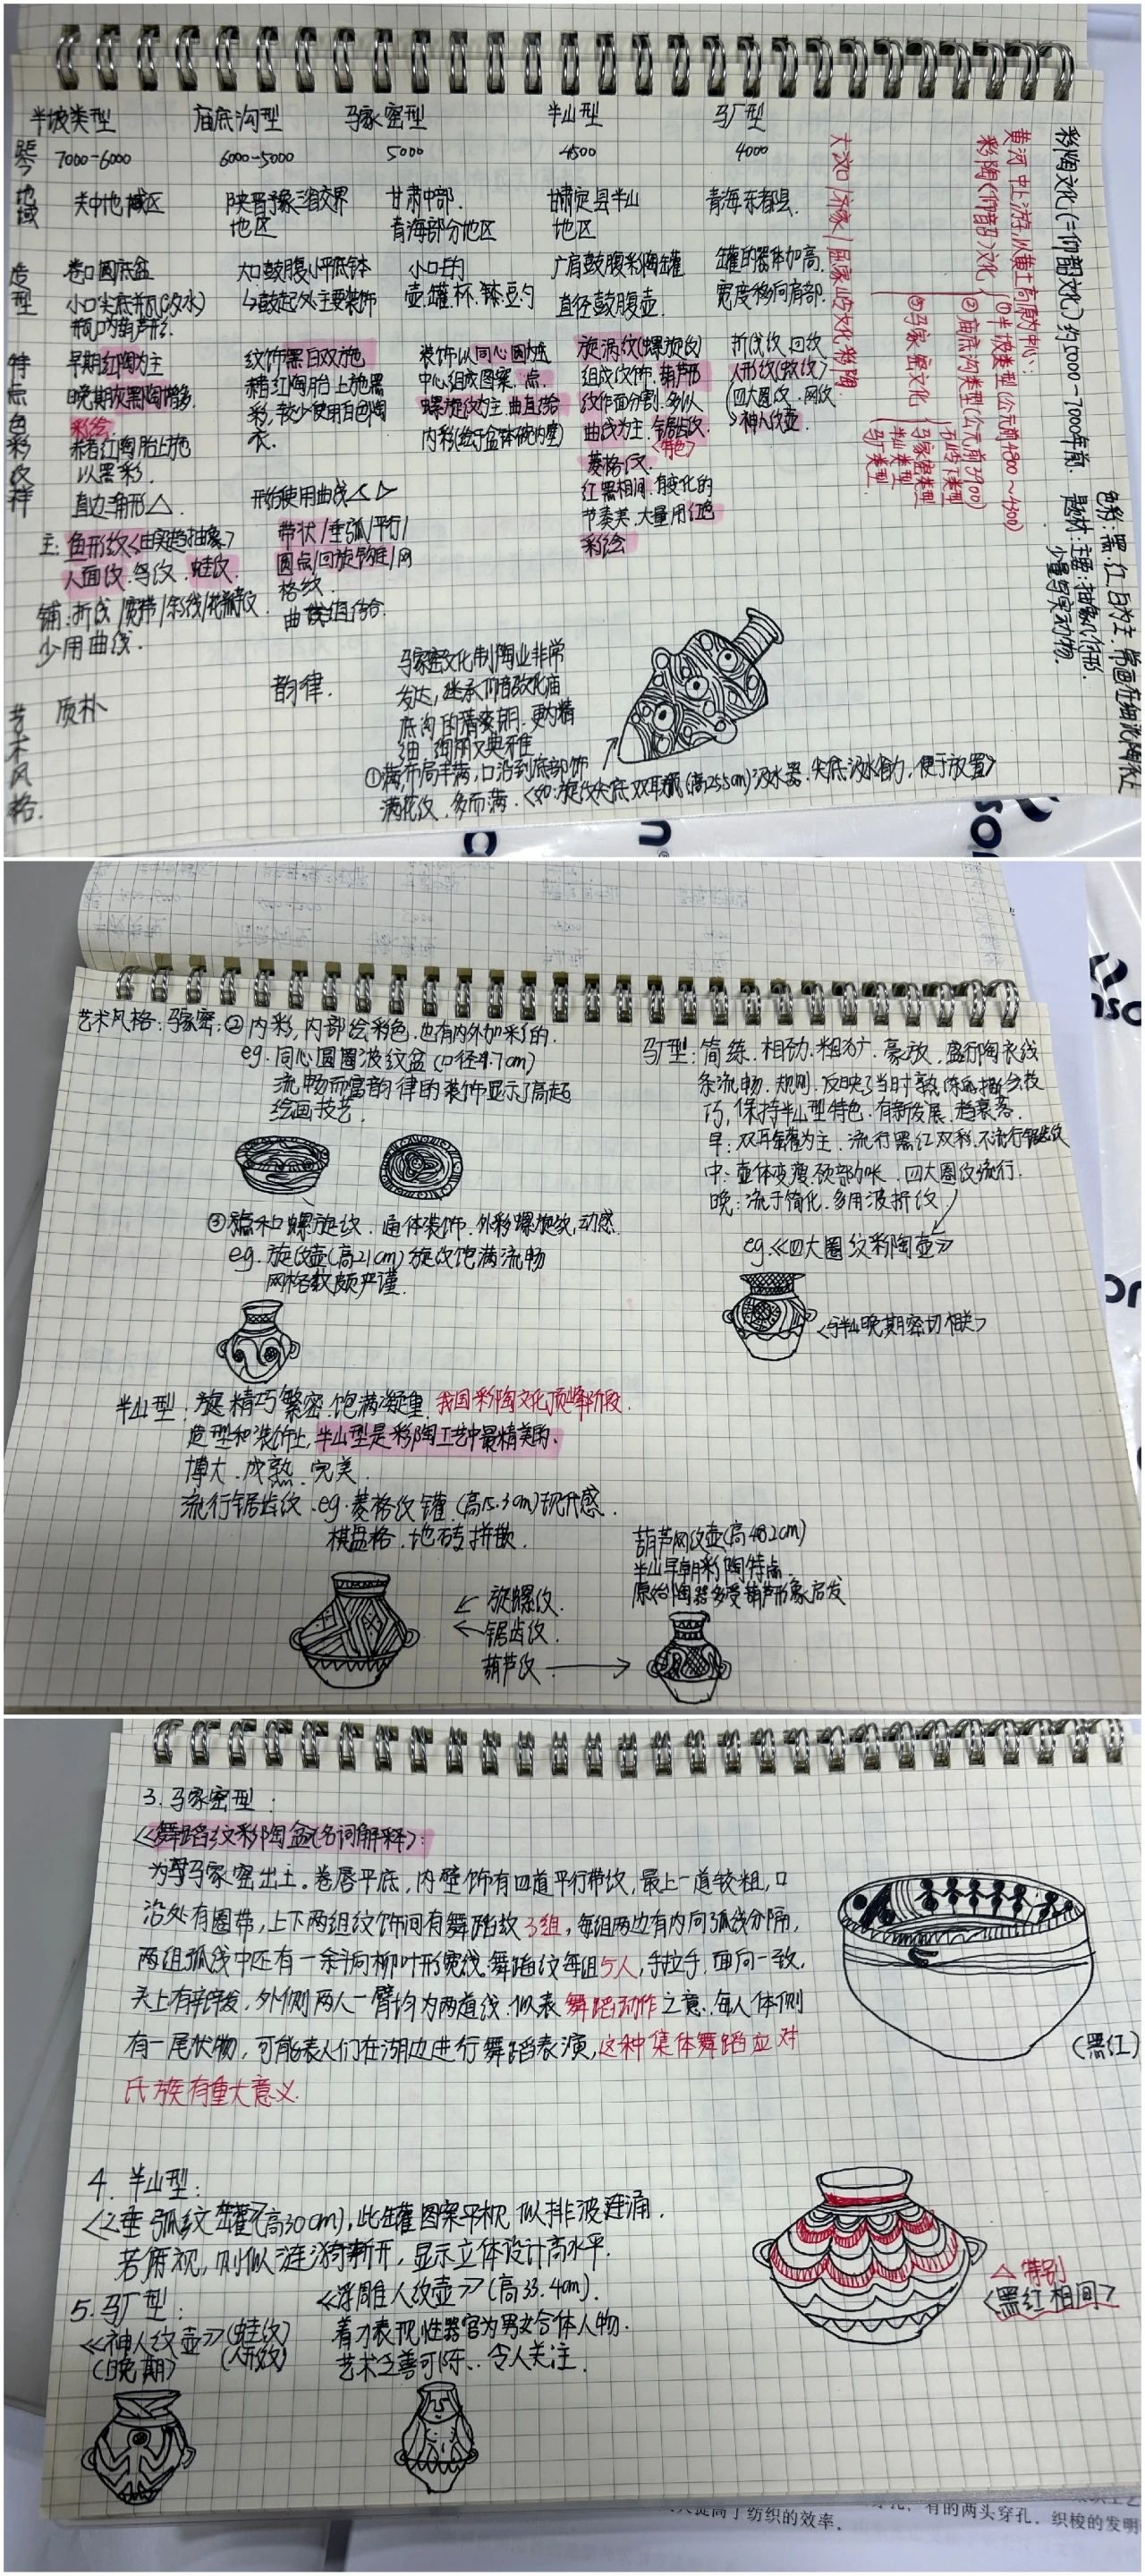 半坡类型 庙底沟型 马家窑型 半山型 马厂型
7000-6000 6000-5000 5000 4500 4000
地域 关中地域区 陕晋豫三省交界地区 甘肃中部.青海部分地区 甘肃定县半山地区 青海东都县.
造型
卷口圆底盆
小口尖底瓶(汲水)
瓶口葫芦形.
大口鼓腹小平底钵
鼓起处主要装饰
小口的
壶、罐、杯、钵、豆、勺
广肩鼓腹彩陶罐
直径鼓腹壶.
罐的器体加高.
宽度移向肩部.
特点色彩纹样
早期红陶为主
晚期灰黑陶增多.
彩绘
赤着红陶胎上施
以黑彩.
直边三角形△.
主:鱼形纹<由实趋抽象>
人面纹.鸟纹.蛙纹.
辅:折线/宽带/斜线/花瓣纹
少用曲线.
纹饰黑白双施色
赭红陶胎上施黑
彩,较少使用白色陶
衣.
开始使用曲线
带状/垂弧/平行/
圆点/回旋钩连/网
格纹.
曲线组结合.
装饰以同心圆为
中心组成图案.点.
螺旋纹为主.曲直结
内彩(绘于盆钵碗内壁)
旋涡纹(螺旋的)
组成纹饰.葫芦形
纹作面分割.多以
曲线为主.锯齿纹.
<特色>
菱格纹.
红黑相间.有变化的
节奏美.大量用红色
彩绘
折线纹.回纹
人形纹(蛙纹)
四大圈纹.网纹
神人纹壶.
艺术风格.
质朴
韵律.
马家窑文化制陶业非常
发达,继承仰韶文化庙
底沟的清爽明.更为精
细.绚丽又典雅
①满,布局丰满,口沿到底部饰
满花纹.多而满.<如:旋纹尖底双耳瓶(高25.5cm)汲水器.尖底汲水省力,便于放置>
彩陶文化(=仰韶文化)约5000-7000年前.
题材:主要:抽象几何形.
少量写实动物.
色彩:黑.红.白为主.常画在细泥陶表上
黄河中上游,以黄土高原为中心:
彩陶(仰韶)文化
①半坡类型(公元前4800~4300)
②庙底沟类型(公元前3900)
③马家窑文化
石岭下类型
马家窑类型
半山类型
马厂类型
大汶口/齐家/屈家岭文化彩陶
艺术风格:马家窑:②内彩,内部绘彩色.也有内外加彩的.
eg.同心圆圈波纹盆(口径9.7cm)
流畅而富韵律的装饰显示了高超
绘画技艺.
③点和螺旋纹.通体装饰.外彩螺旋纹,动感.
eg.旋纹壶(高21cm)旋纹饱满流畅
网格纹颇严谨.
马厂型:简练.粗劲.粗犷.豪放.盛行陶衣线
条流畅.规则.反映了当时熟练的描绘技
巧,保持半山型特色.有新发展.趋衰落.
早:双耳罐为主.流行黑红双彩.不流行锯齿纹
中:壶体变瘦.颈部加长.四大圈纹流行.
晚:流于简化.多用波折纹
eg.《四大圈纹彩陶壶》
<与半山晚期密切相关>
半山型:旋精巧繁密.饱满凝重.我国彩陶文化顶峰阶段.
造型和装饰上,半山型是彩陶工艺中最精美的.
博大.成熟.完美.
流行锯齿纹.eg.菱格纹罐(高15.3cm)现代感.
棋盘格.地砖拼嵌.
旋螺纹.
锯齿纹.
葫芦纹
葫芦网纹壶(高48.2cm)
半山早期彩陶特点.
原始陶器多受葫芦形象启发
3.马家窑型:
《舞蹈纹彩陶盆》(名词解释):
为马家窑出土.卷唇平底,内壁饰有四道平行带纹,最上一道较粗,口
沿处有圈带,上下两组纹饰间有舞蹈纹3组,每组两边有内向弧线分隔,
两组弧线中还有一条斜向柳叶形宽线.舞蹈纹每组5人,手拉手,面向一致,
头上有辫发,外侧两人一臂均为两道线.似表舞蹈动作之意.每人体侧
有一尾状物,可能表人们在湖边进行舞蹈表演,这种集体舞蹈应对
氏族有重大意义.
(黑红)
4.半山型:
《垂弧纹罐》(高30cm),此罐图案平视似排波连涌.
若俯视,则似涟漪漸开,显示立体设计高水平.
△特别
<黑红相间>
5.马厂型:
《神人纹壶》(蛙纹)
(晚期) (人形纹)
《浮雕人纹壶》(高33.4cm).
着力表现性器官为男女合体人物.
艺术乏善可陈..令人关注.
高了纺织的效率.
有的两头穿孔.织梭的发明